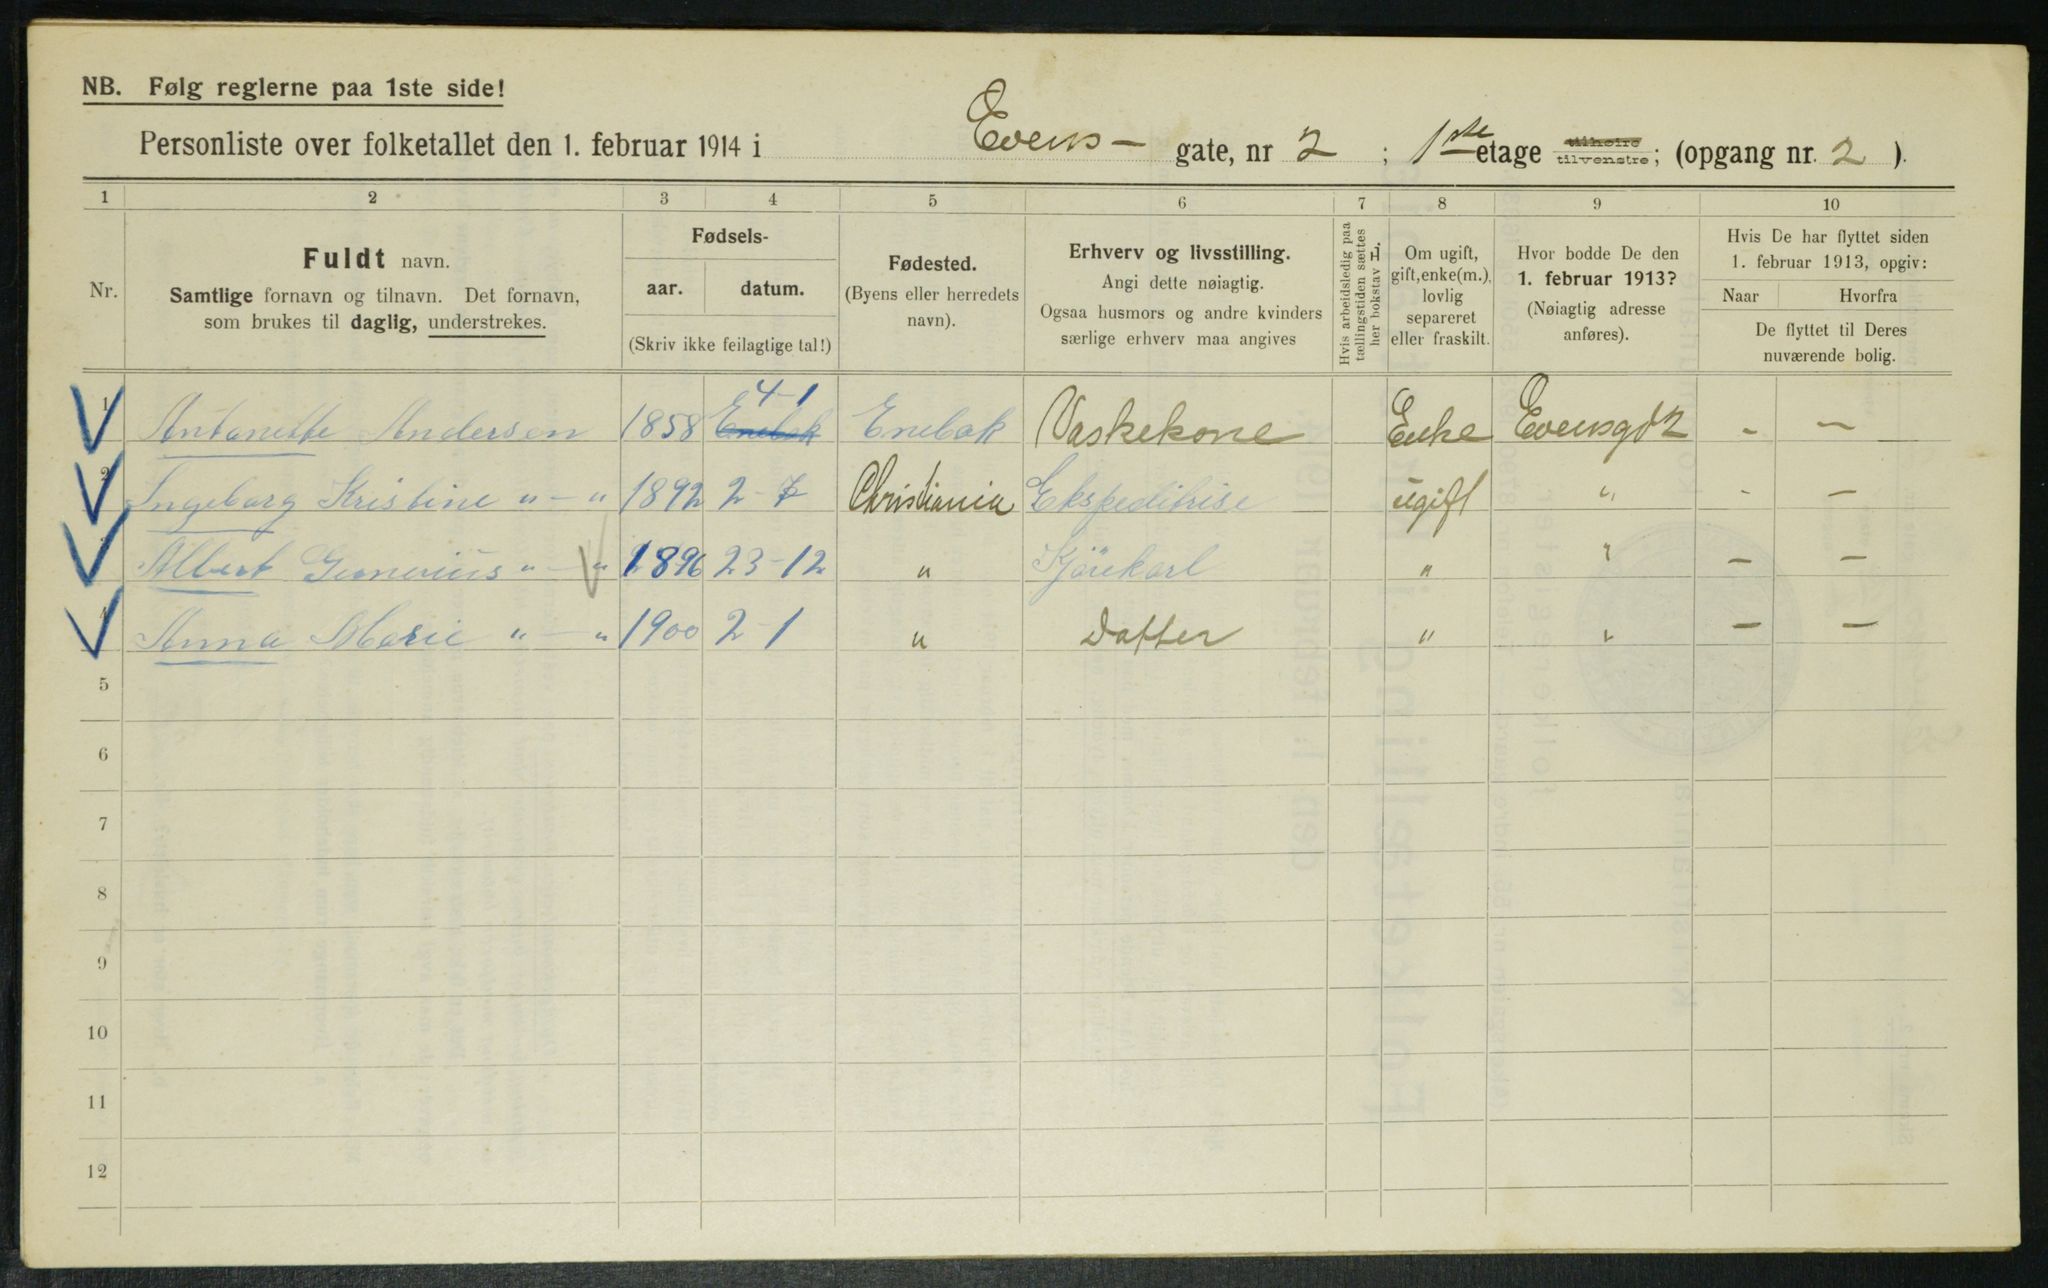 NB. Følg reglerne paa 1ste side!
Personliste over folketallet den 1. februar 1914 i Evens- gate, nr 2 ; 1ste etage tilhøire tilvenstre; (opgang nr. 2 ).
1 2 3 4 5 6 7 8 9 10
Nr.
Fuldt navn.
Samtlige fornavn og tilnavn. Det fornavn,
som brukes til daglig, understrekes.
Fødsels-
aar. datum.
(Skriv ikke feilagtige tal!)
Fødested.
(Byens eller herredets
navn).
Erhverv og livsstilling.
Angi dette nøiagtig.
Ogsaa husmors og andre kvinders
særlige erhverv maa angives
Hvis arbeidsledig paa
tællingstiden sættes
her bokstav L.
Om ugift,
gift, enke(m.),
lovlig
separeret
eller fraskilt.
Hvor bodde De den
1. februar 1913?
(Nøiagtig adresse
anføres).
Hvis De har flyttet siden
1. februar 1913, opgiv:
Naar Hvorfra
De flyttet til Deres
nuværende bolig.
1 Antonette Andersen 1858 4-1 Enebak Enebak Vaskekone Enke Evensgd 2 - -
2 Ingeborg Kristine " - " 1892 2-7 Christiania Ekspeditrise ugift " - -
3 Albert " - " 1896 23-12 " Kjörekarl " " - -
4 Anna Marie " - " 1900 2-1 " Datter " " - -
5
6
7
8
9
10
11
12